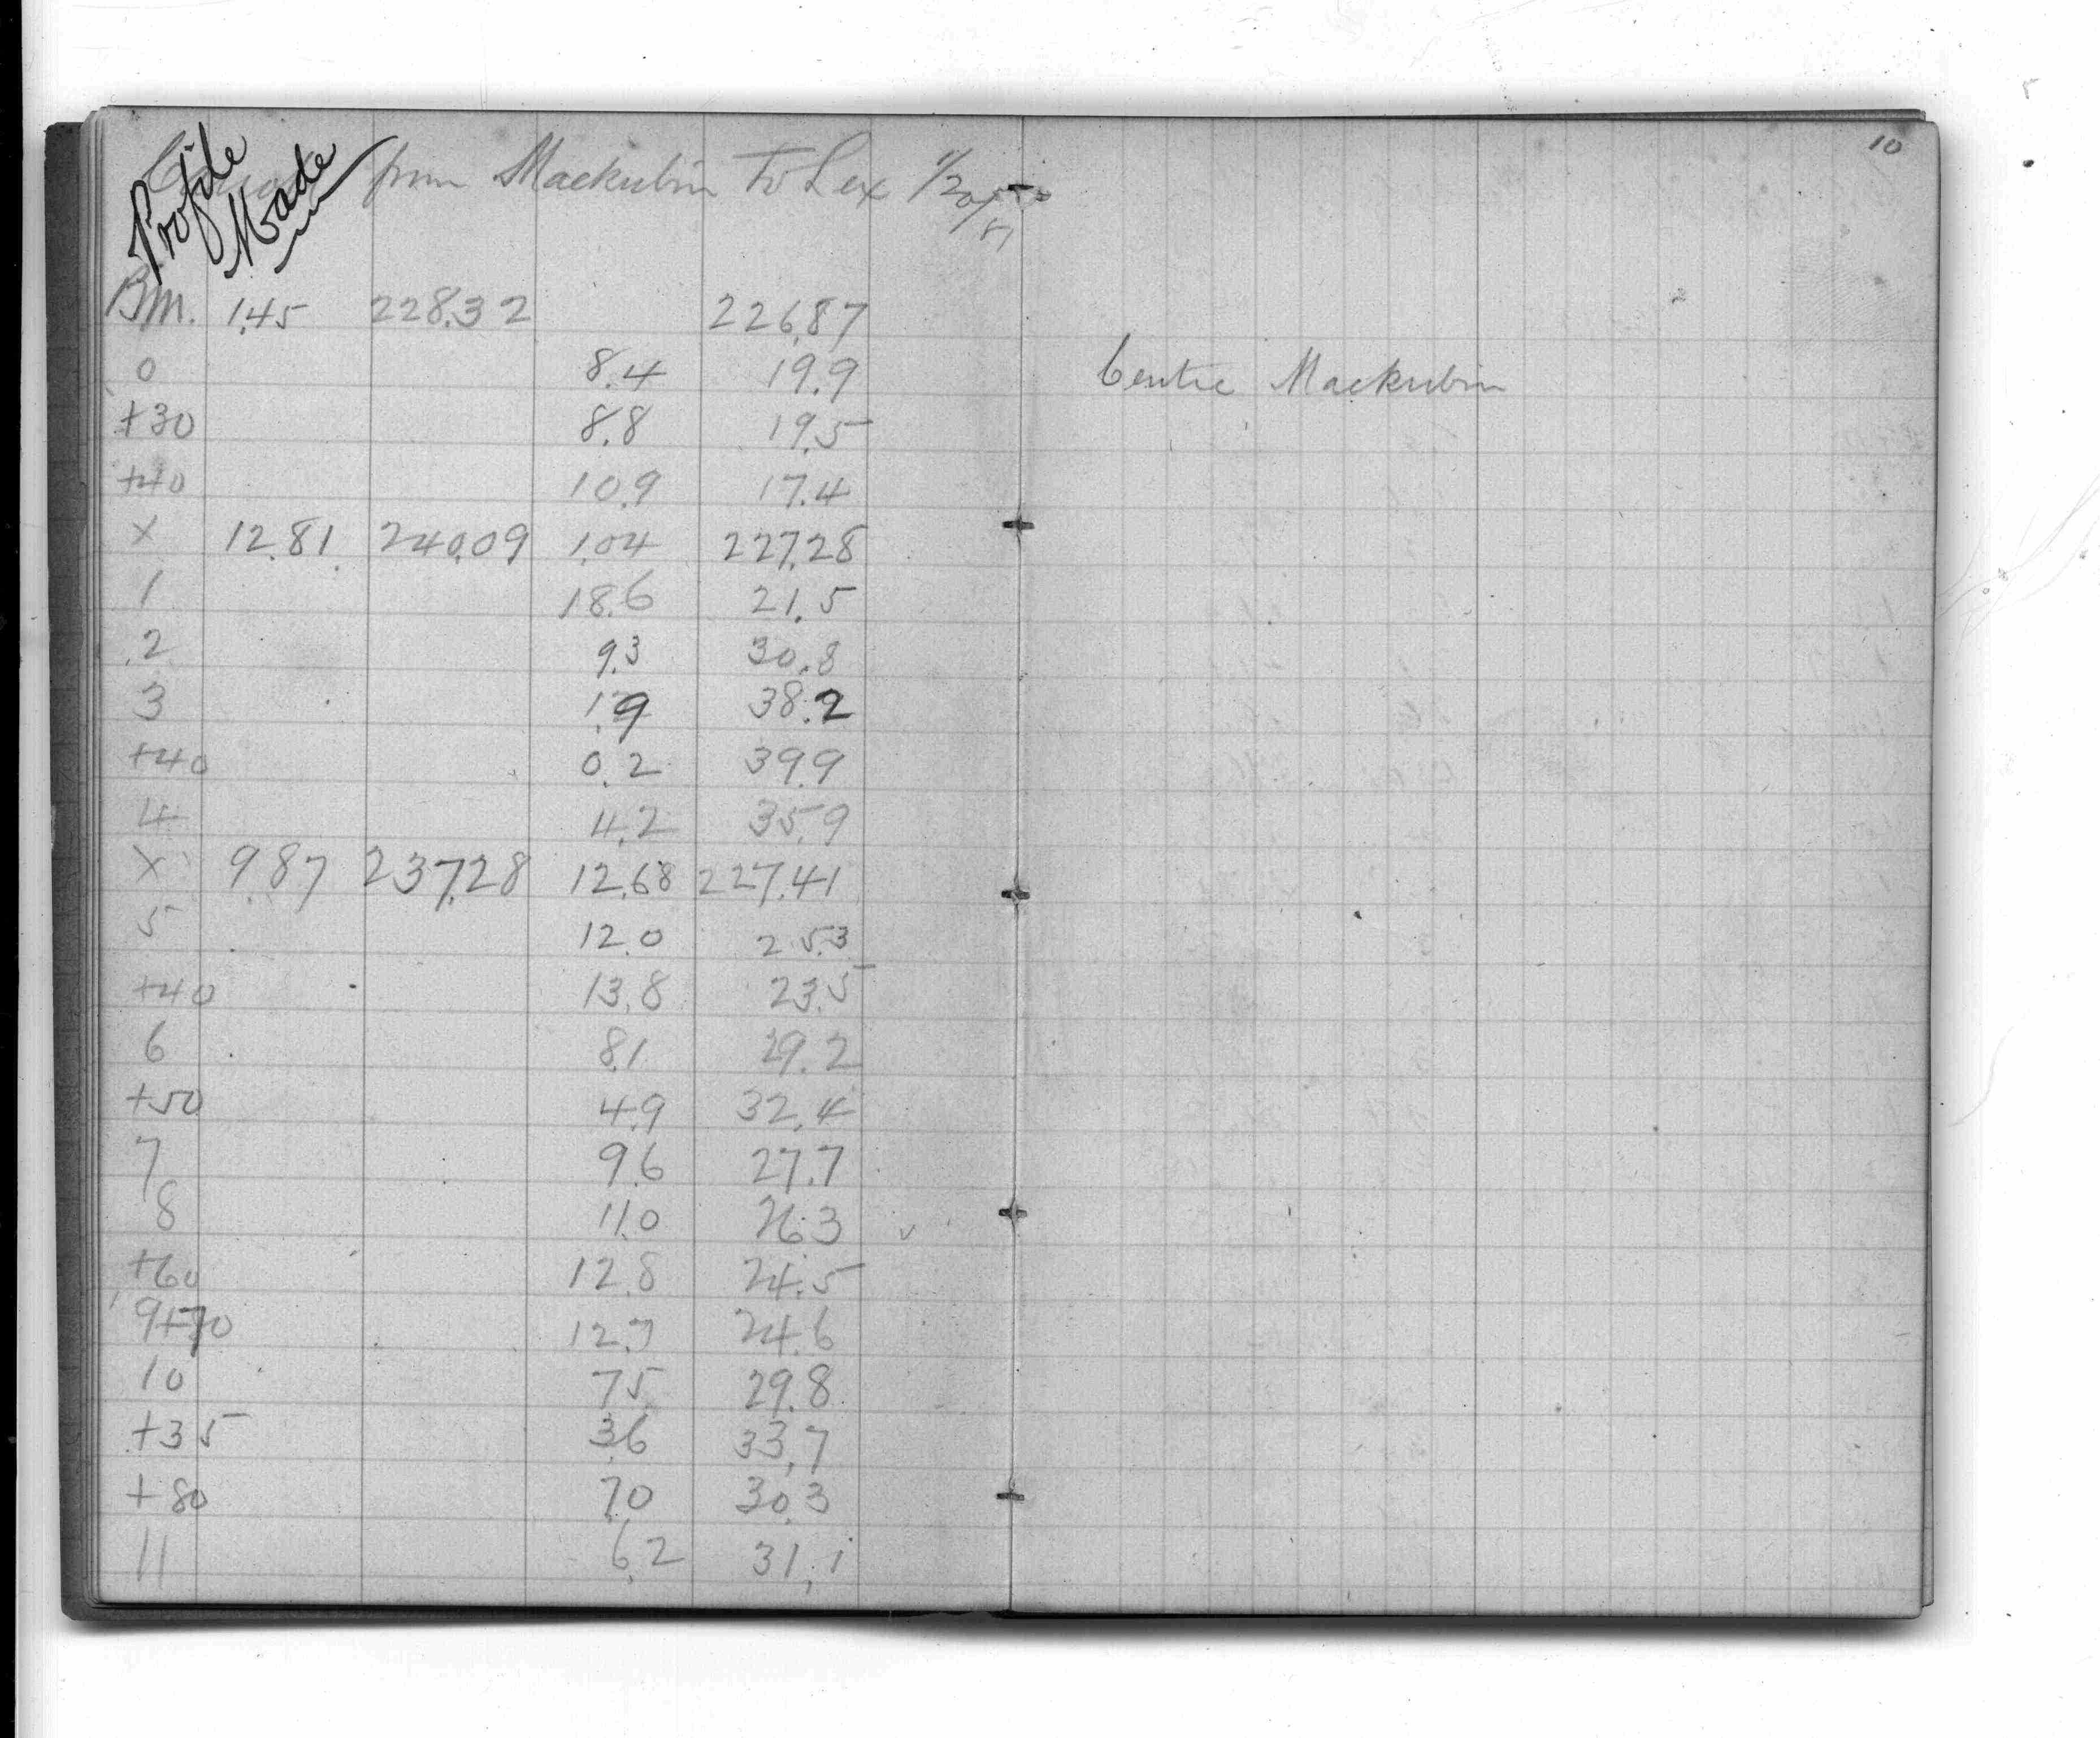 Profile
Made
from Mackubin to Lex
BM. 1.45 228.32 226.87
0 8.4 19.9 Centre Mackubin
+30 8.8 19.5
+40 10.9 17.4
X 12.81 240.09 1.04 227.28
1 18.6 21.5
2 9.3 30.8
3 1.9 38.2
+40 0.2 39.9
4 4.2 35.9
X 9.87 237.28 12.68 227.41
5 12.0 25.3
+40 13.8 23.5
6 8.1 29.2
+50 4.9 32.4
7 9.6 27.7
8 11.0 26.3
+60 12.8 24.5
9+70 12.7 24.6
10 7.5 29.8
+35 3.6 33.7
+80 7.0 30.3
11 6.2 31.1
10